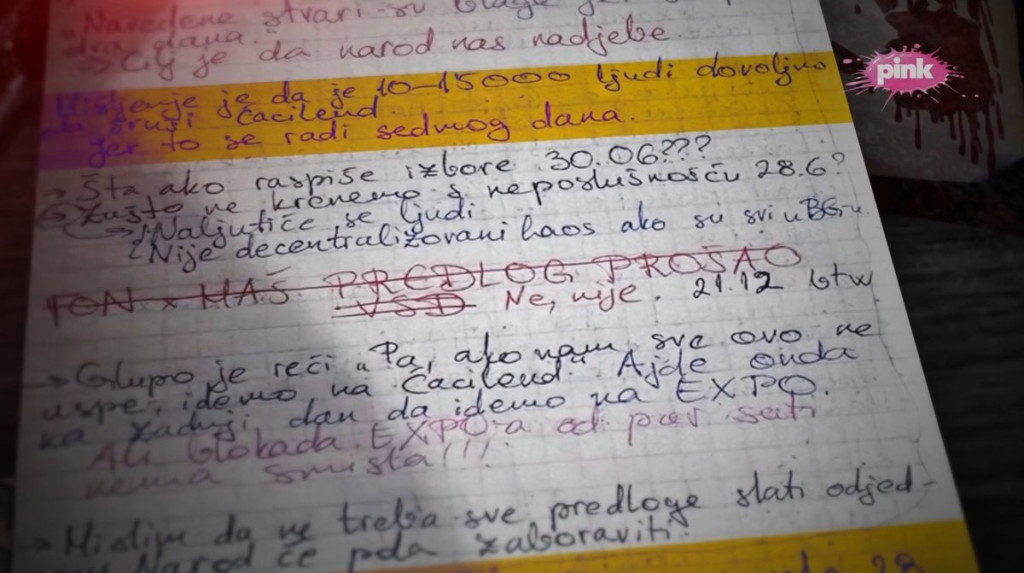 Navedene stvari su blage
dva dana
→ Cilj je da narod nas nadjebe
pink
Mišljenje je da je 10-15000 ljudi dovoljno
da sruši Ćacilend.
jer to se radi sedmog dana.
→ Šta ako raspiše izbore 30.06???
→ Zašto ne krenemo s neposlušnošću 28.6?
→ Naljutiće se ljudi
Nije decentralizovani haos ako su svi u BG-u.
FON × MAŠ PREDLOG PROŠAO
VSD Ne, nije. 21.12 btw
→ Glupo je reći „Pa, ako nam sve ovo ne
uspe, idemo na Ćacilend" Ajde onda
na zadnji dan da idemo na EXPO.
Ali blokada EXPO-a od par sati
nema smisla!!!
→ Mislim da ne treba sve predloge slati odjed-
Narod će pola zaboraviti.